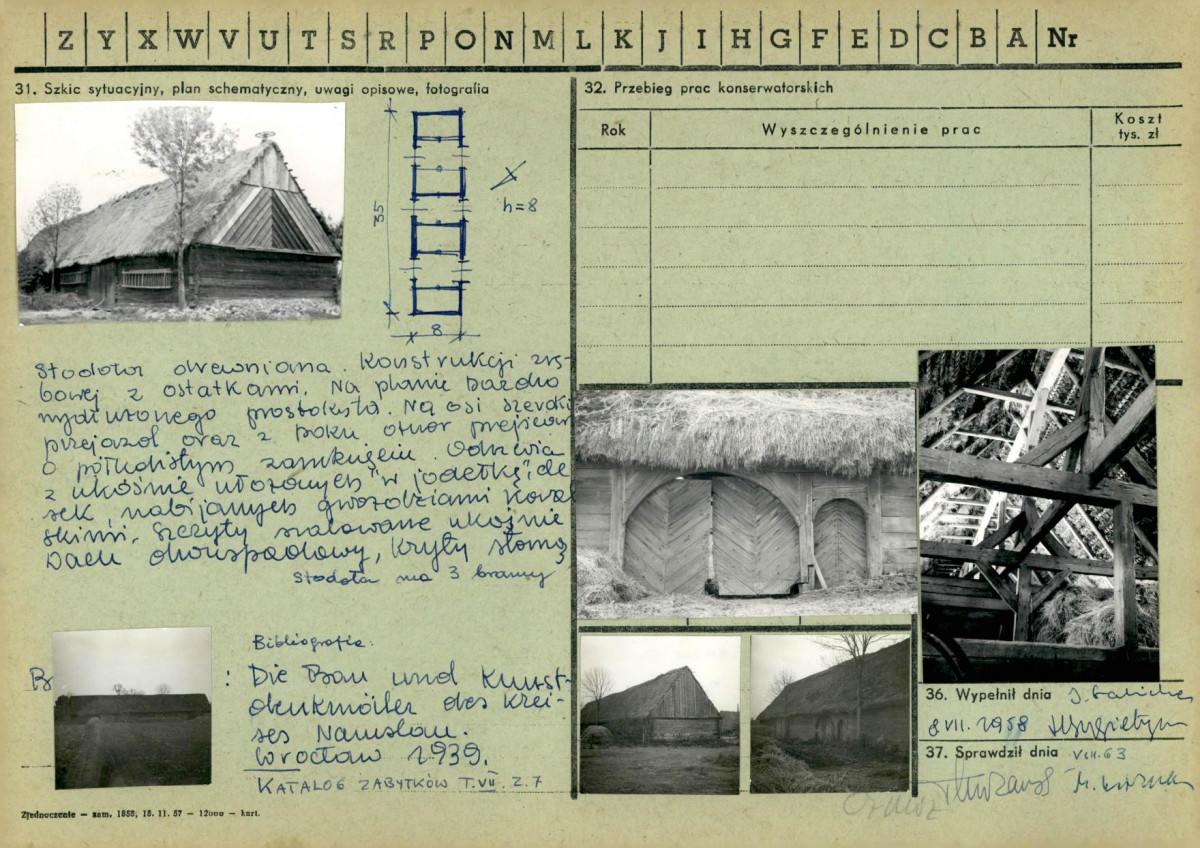 Z Y X W V U T S R P O N M L K J I H G F E D C B A Nr
31. Szkic sytuacyjny, plan schematyczny, uwagi opisowe, fotografia
35
8
h=8
Stodoła drewniana. Konstrukcji zrę-
bowej z ostatkami. Na planie bardzo
wydłużonego prostokąta. Na osi szeroki
przejazd oraz z boku otwór
o półkolistym zamknięciu. Odrzwia
z ukośnie ułożonych "w jodełkę" de
sek, nabijanych gwoździami kowa
skimi. Szczyty szalowane ukośnie
Dach dwuspadowy, kryty słomą
Stodoła ma 3 bramy
Bibliografia:
B :
Die Bau und Kunst-
denkmäler des Krei-
ses Namslau.
Wrocław 1939.
KATALOG ZABYTKÓW T.VII. Z.7
Zjednoczenie — zam. 1858; 18. 11. 57 — 12000 — kart.
32. Przebieg prac konserwatorskich
Rok
Wyszczególnienie prac
Koszt
tys. zł
36. Wypełnił dnia
8 VII. 1958
37. Sprawdził dnia VIII.63